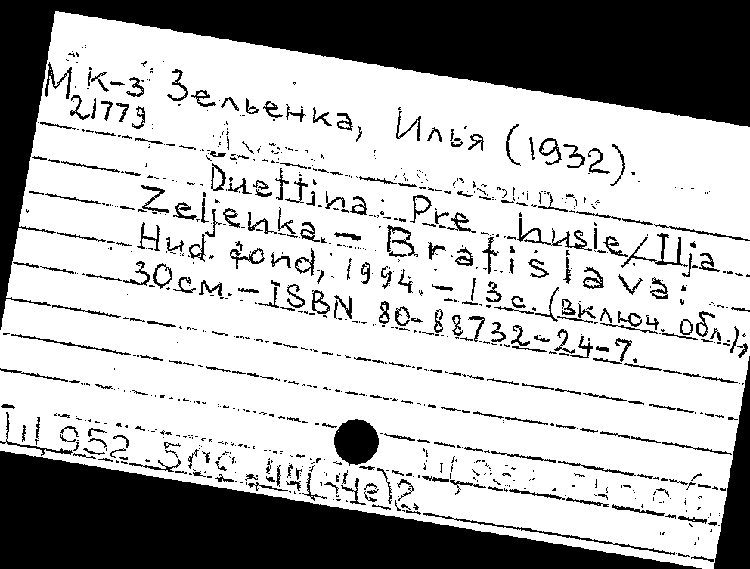 М К-3 Зельенка, Илья (1932).
21779
Duettina: Pre husle/Ilja
Zeljenka. – Bratislava:
Hud. fond, 1994. – 13 с. (включ. обл.);
30 см. – ISBN 80-88732-24-7.
Щ 952.5